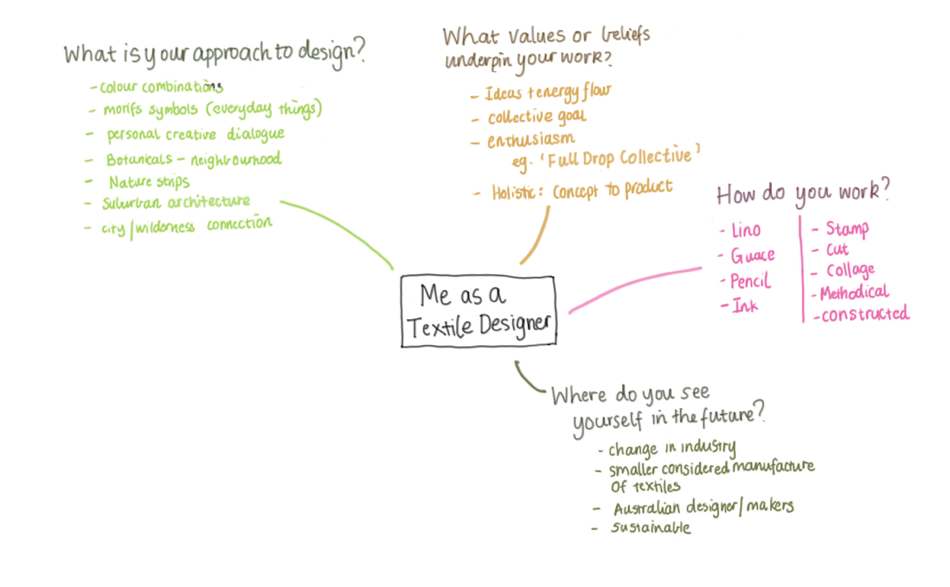 What is your approach to design?
- colour combinations
- motifs symbols (everyday things)
- personal creative dialogue
- Botanicals - neighbourhood
- Nature strips
- Suburban architecture
- city/wilderness connection
What values or beliefs
underpin your work?
- Ideas + energy flow
- collective goal
- enthusiasm
eg. 'Full Drop Collective'
- Holistic: Concept to product
How do you work?
- Lino
- Guace
- Pencil
- Ink
- Stamp
- Cut
- Collage
- Methodical
- constructed
Me as a
Textile Designer
Where do you see
yourself in the future?
- change in industry
- smaller considered manufacture
of textiles
- Australian designer/makers
- sustainable